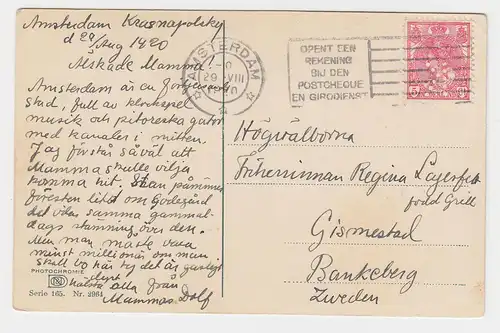 Amsterdam Krasnapolsky
d 29/Aug 1920
Älskade Mamma!
Amsterdam är en förtjusande
stad, full av klockspel
musik och pitoreska gator
med kanaler i mitten.
Jag förstår så väl att
Mamma skulle vilja
komma hit. Stan påminner
föresten litet om Godegård
det vilar samma gammal-
dags stämning över den.
Men man måste vara
minst millionär om man
skall bo här ty det är gasligt
dyrt
hälsa alla från
Mammas Dolf
PHOTOCHROMIE
Serie 165. Nr. 2964
AMSTERDAM
29 VIII
OPENT EEN
REKENING
BIJ DEN
POSTCHEQUE
EN GIRODIENST
5 CENT
Högvälborna
Friherrinnan Regina Lagerfelt
född Grill
Gismestad
Bankeberg
Zweden